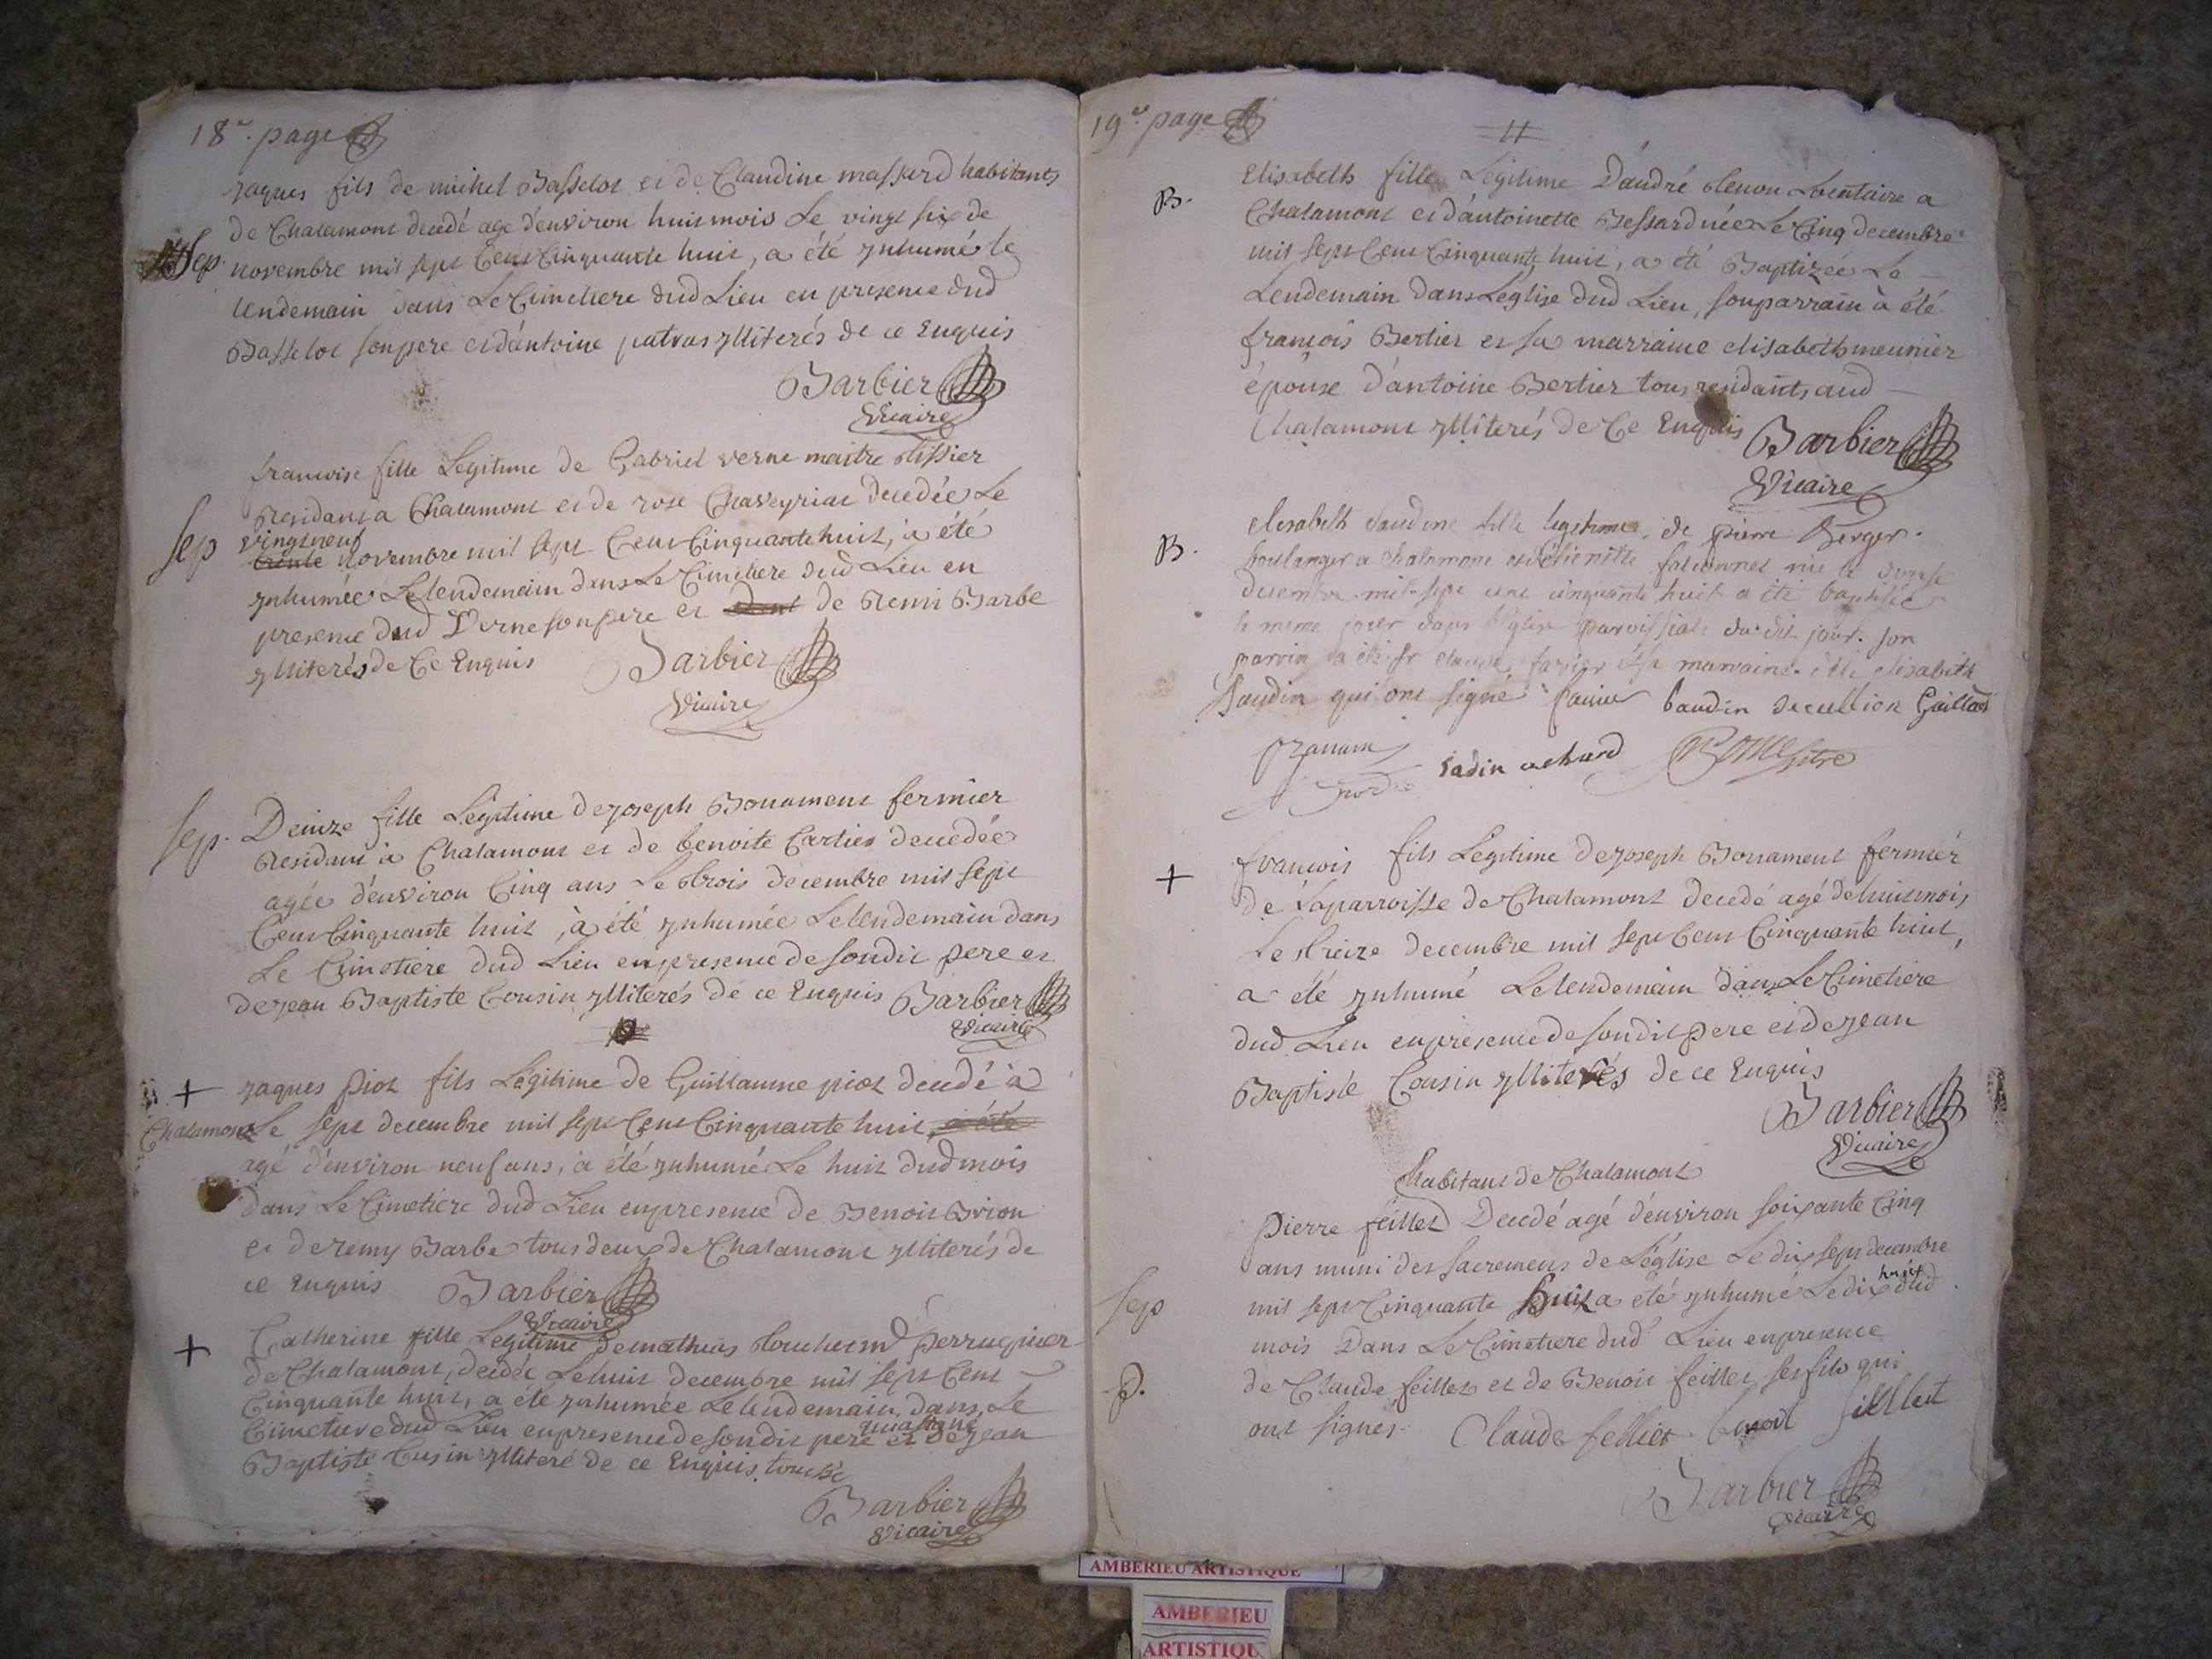 18e. page
jaques fils de michel Basselot et de Claudine massard habitants
de Chalamont decedé agé d'environ huit mois Le vingt six de
Sep. novembre mil sept Cent Cinquante huit, a été ynhumé le
lendemain dans Le Cimetiere dud Lieu en presence dud
Basselot son pere et d'antoine patras ylliterés de ce Enquis
Barbier
Vicaire
francoise fille Legitime de Gabriel verne maitre tissier
Residant a Chalamont et de rose Chaveyriat decedée Le
Sep vingt neuf
trente novembre mil sept Cent Cinquante huit, a été
ynhumée Le lendemain dans Le Cimetiere dud Lieu en
presence dud Verne son pere et de Remi Barbe
ylliterés de Ce Enquis Barbier
Vicaire
Sep. Denize fille Légitime de joseph Bonament fermier
Residant à Chalamont et de benoite Cartier decedée
agée d'environ Cinq ans Le trois decembre mil sept
Cent Cinquante huit, à été ynhumée Le lendemain dans
Le Cimetiere dud Lieu en presence de sondit pere et
de jean Baptiste Cousin ylliterés de ce Enquis Barbier
Vicaire
+ jaques piot fils Légitime de Guillaume piot decedé à
Chalamont Le sept decembre mil sept Cent Cinquante huit, a été
agé d'environ neuf ans, a été ynhumé Le huit dud mois
dans Le Cimetiere dud Lieu en presence de Benoit Brion
et de remy Barbe tous deux de Chalamont ylliterés de
ce Enquis Barbier
Vicaire
+ Catherine fille Legitime de mathias md perruquier
de Chalamont, decedée Le huit decembre mil sept Cent
Cinquante huit, a été ynhumée Le lendemain dans Le
Cimetiere dud Lieu en presence de sondit pere qui a signé et de jean
Baptiste Cusin ylliteré de ce Enquis.
Barbier
Vicaire
19e page
11
B. Elisabeth fille Légitime D'andré a
Chalamont et d'antoinette Bessard née Le Cinq decembre
mil sept Cent Cinquante huit, a été Baptizée Le
Lendemain dans L'église dud Lieu, son parrain à été
françois Bertier et sa marraine elisabeth meunier
épouse d'antoine Bertier tous residants aud
Chalamont ylliterés de Ce Enquis Barbier
Vicaire
B. elisabeth fille legitime de pierre Berger.
boulanger a chalamont et d'étienette née le
decembre mil sept cent cinquante huit a été baptisée
le meme jour dans l'église parroissiale du dit jour. son
parrain a été sr claude farier et sa marraine elisabeth
baudin qui ont signé farier baudin decullion Gaillard
achard
+ francois fils Légitime de joseph Bonament fermier
de La parroisse de Chalamont decedé agé de huit mois
Le treize decembre mil sept Cent Cinquante huit,
a été ynhumé Le lendemain dans Le Cimetiere
dud Lieu en presence de sondit pere et de jean
Baptiste Cousin ylliterés de ce Enquis
Barbier
Vicaire
habitant de Chalamont
pierre feillet Decedé agé d'environ soixante Cinq
ans muni des sacremens de L'église Le dix sept decembre
Sep mil sept Cinquante huit a été ynhumé Le dix huit dud
mois Dans Le Cimetiere dud Lieu en presence
de Claude feillet et de Benoit feillet ses fils qui
ont signes. Claude felliet benoit fillet
Barbier
Vicaire
AMBERIEU ARTISTIQUE
AMBERIEU
ARTISTIQU